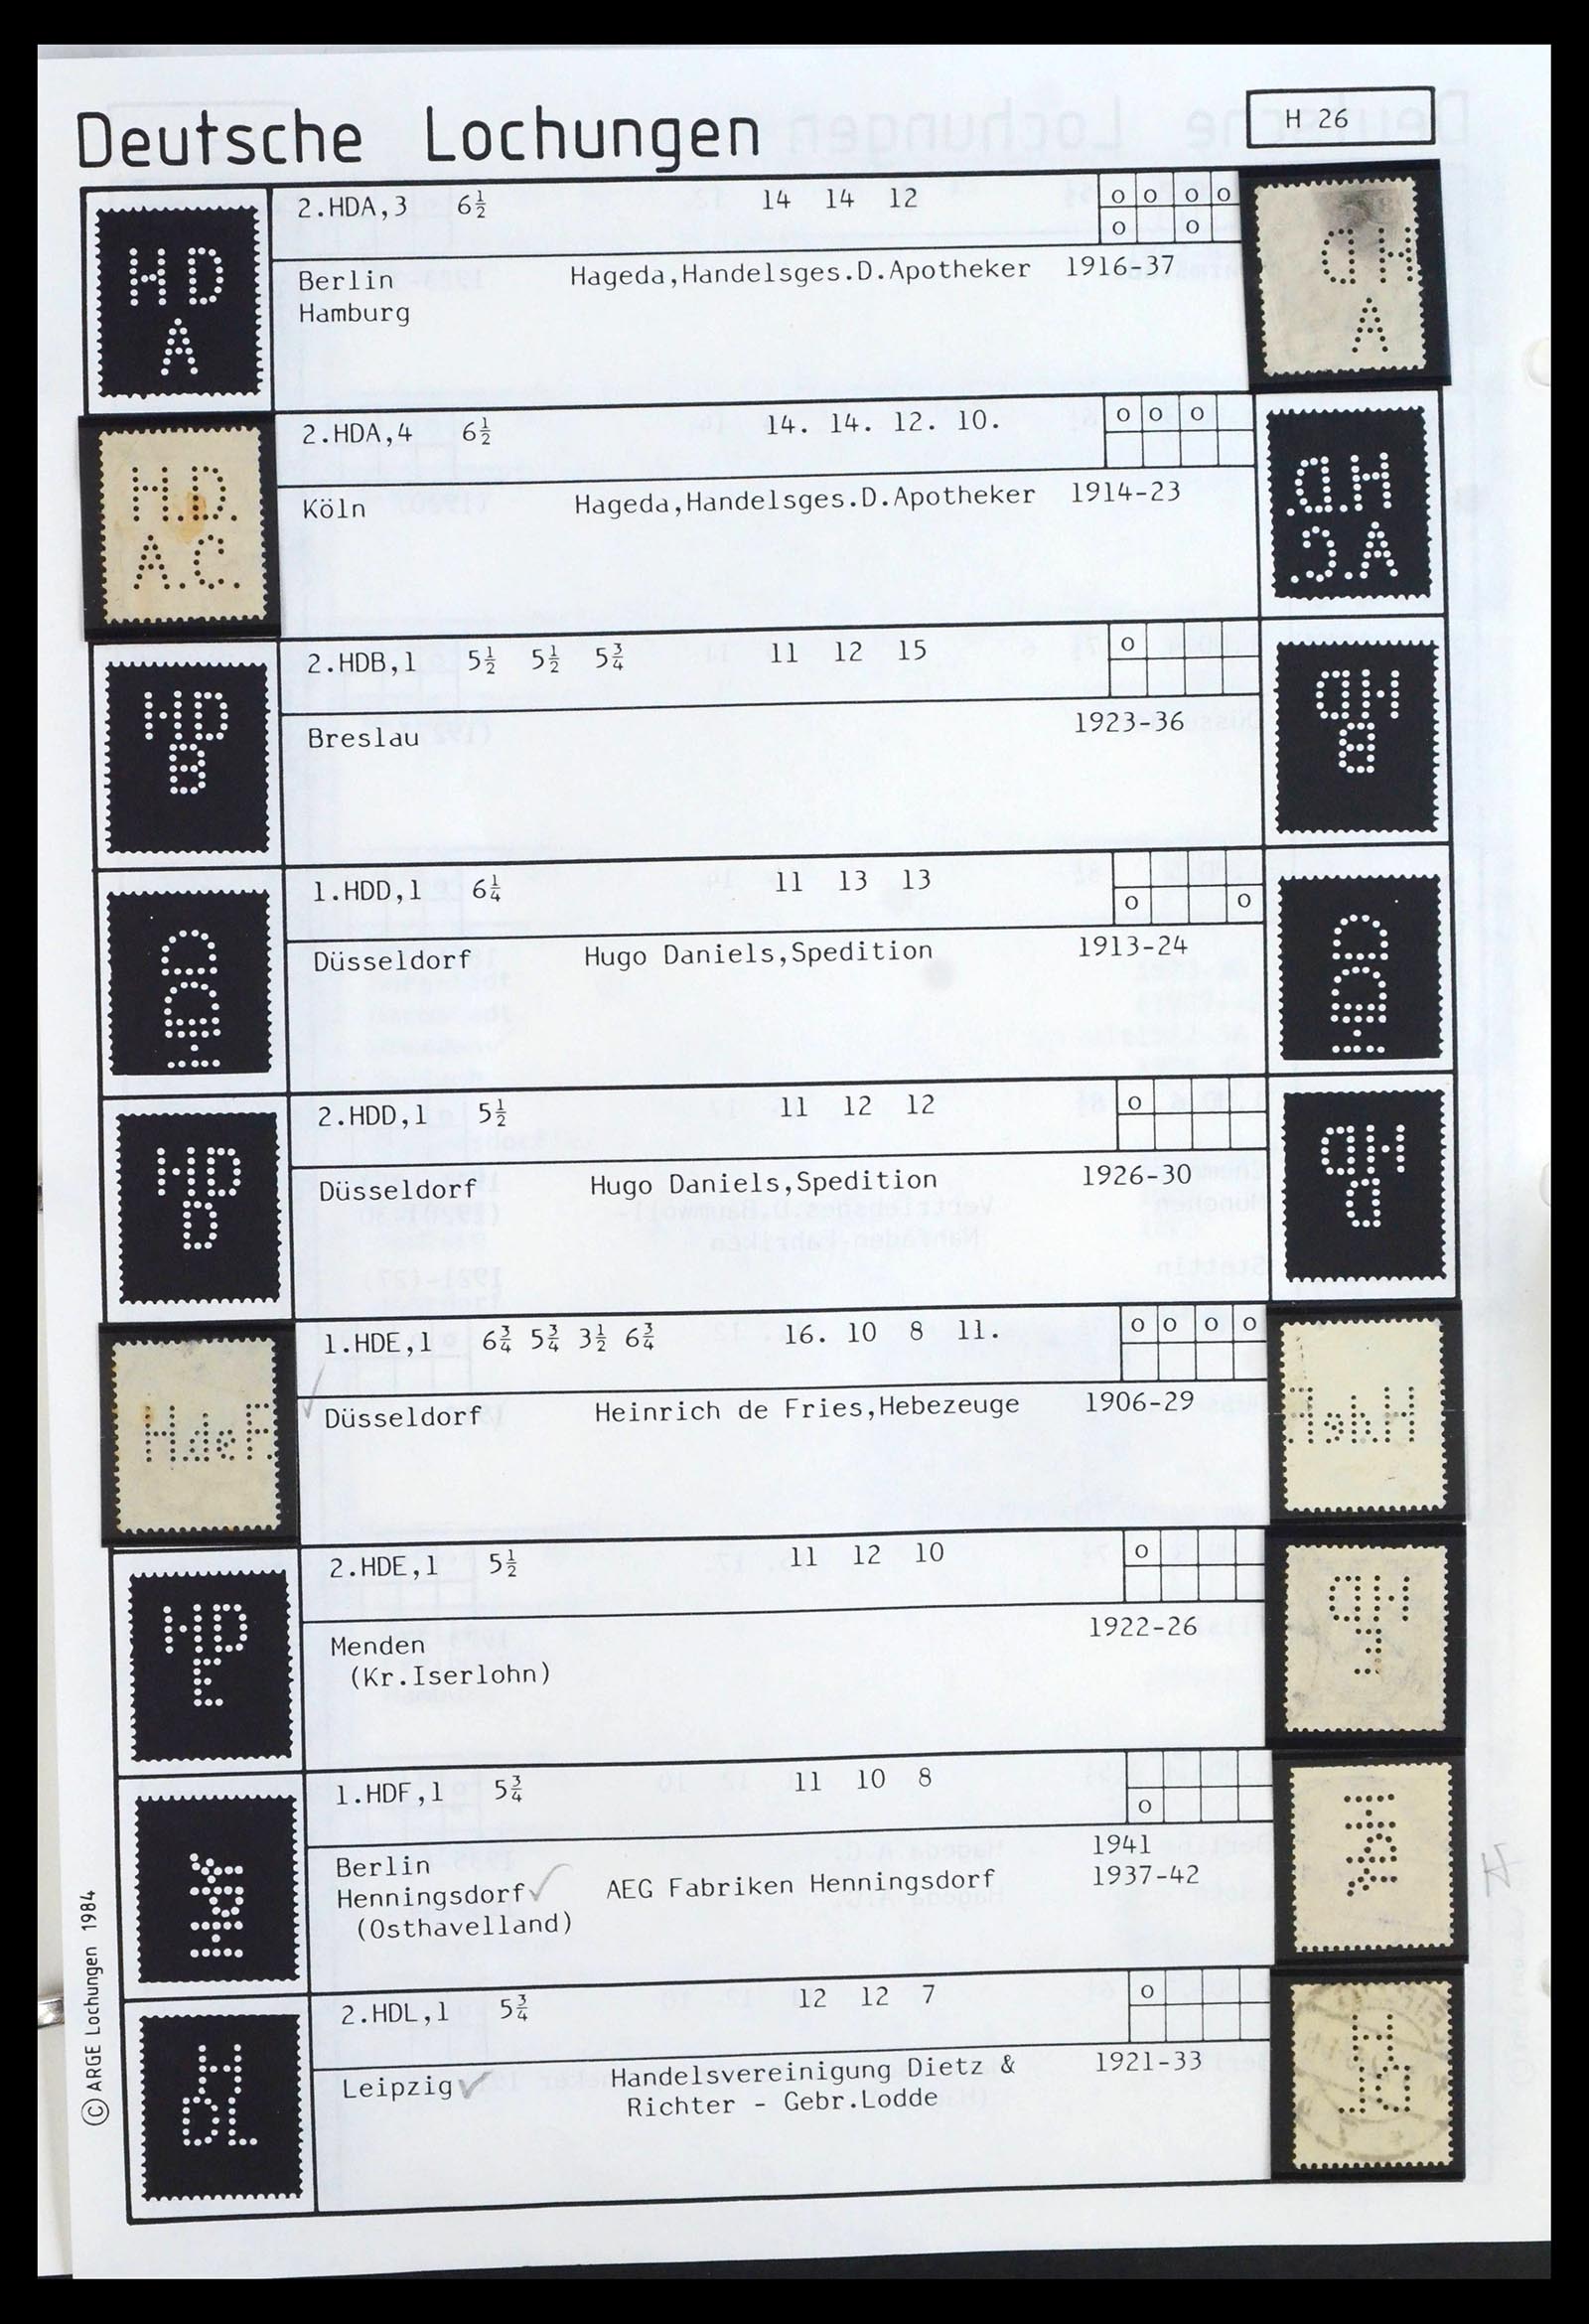 Deutsche Lochungen
H 26
HD
A
2.HDA,3 6½ 14 14 12
o o o o
o o
Berlin Hageda,Handelsges.D.Apotheker 1916-37
Hamburg
HD
A
H.D.
A.C.
2.HDA,4 6½ 14. 14. 12. 10.
o o o
Köln Hageda,Handelsges.D.Apotheker 1914-23
H.D.
A.C.
HD
B
2.HDB,1 5½ 5½ 5¾ 11 12 15
o
Breslau 1923-36
HD
B
HDD
1.HDD,1 6¼ 11 13 13
o o
Düsseldorf Hugo Daniels,Spedition 1913-24
HDD
HD
D
2.HDD,1 5½ 11 12 12
o
Düsseldorf Hugo Daniels,Spedition 1926-30
HD
D
H.deF.
1.HDE,1 6¾ 5¾ 3½ 6¾ 16. 10 8 11.
o o o o
Düsseldorf Heinrich de Fries,Hebezeuge 1906-29
H.deF.
HD
E
2.HDE,1 5½ 11 12 10
o
Menden 1922-26
(Kr.Iserlohn)
HD
E
1.HDF,1 5¾ 11 10 8
o
Berlin 1941
Henningsdorf AEG Fabriken Henningsdorf 1937-42
(Osthavelland)
H
DL
2.HDL,1 5¾ 12 12 7
o
Leipzig Handelsvereinigung Dietz & 1921-33
Richter - Gebr.Lodde
H
DL
© ARGE Lochungen 1984